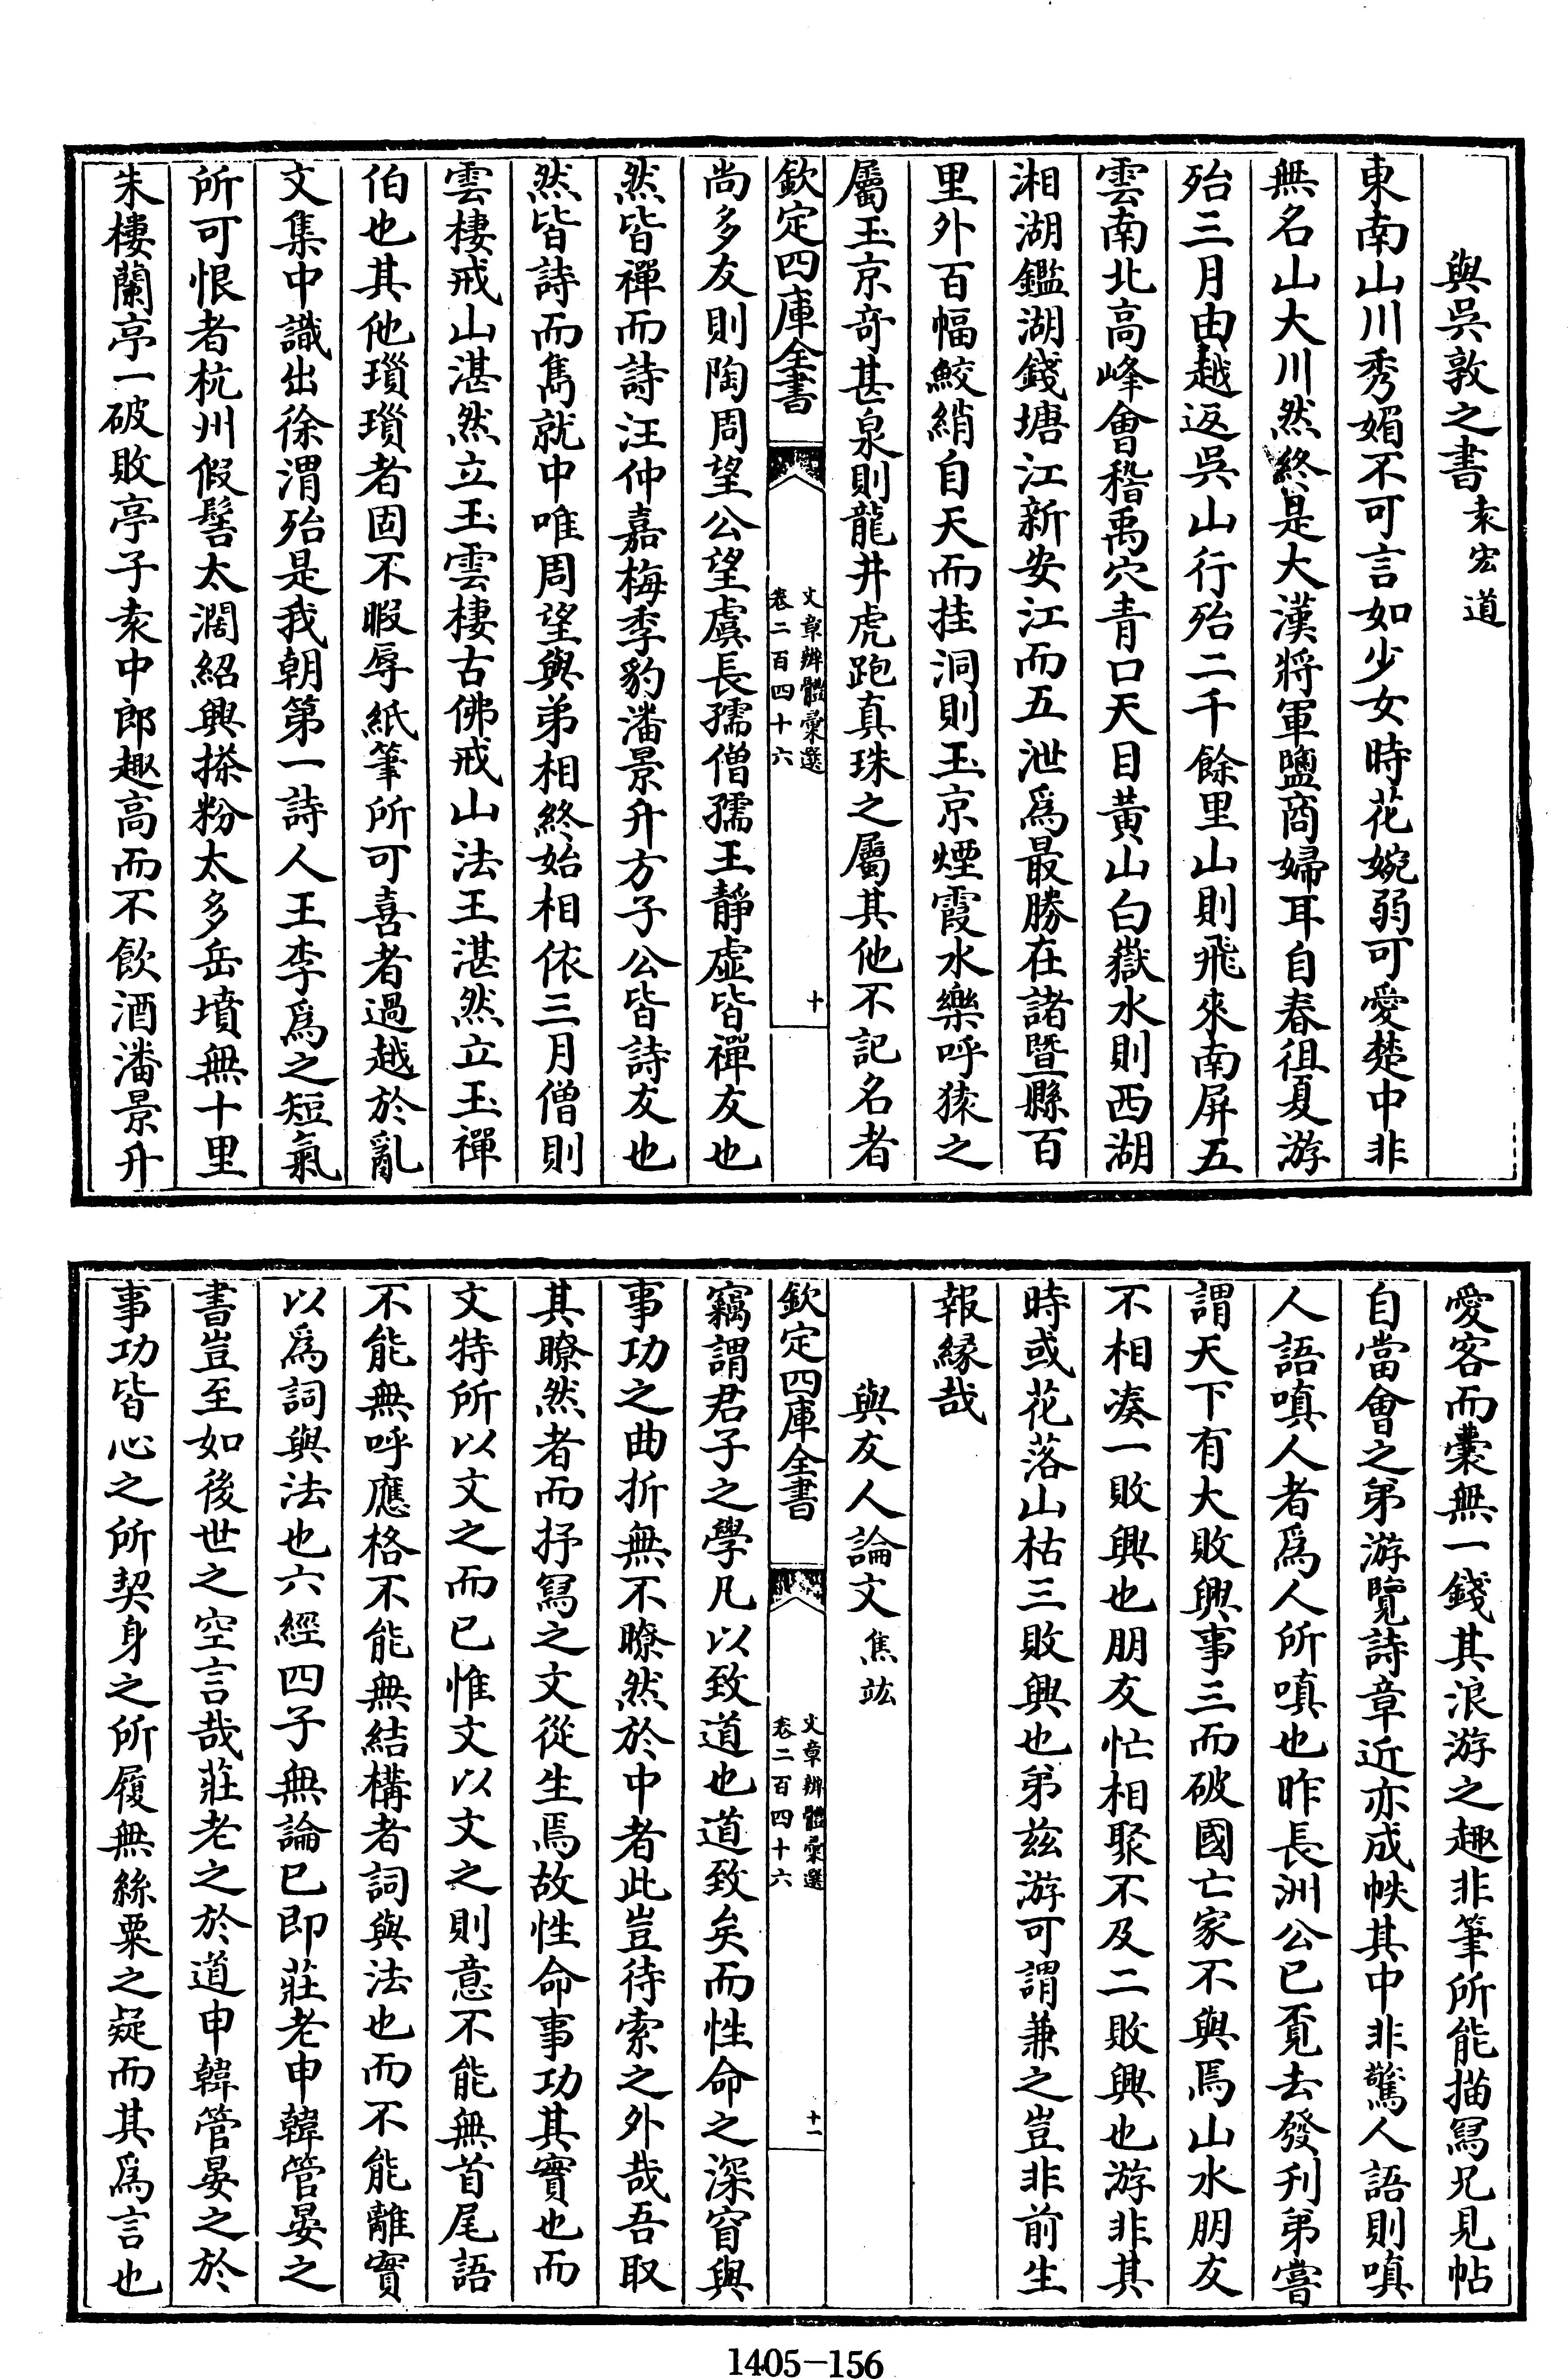 與吳敦之書袁宏道
東南山川秀媚不可言如少女時花婉弱可愛楚中非
無名山大川然終是大漢將軍鹽商婦耳自春徂夏游
殆三月由越返吳山行殆二千餘里山則飛來南屏五
雲南北高峰會稽禹穴青口天目黃山白嶽水則西湖
湘湖鑑湖錢塘江新安江而五泄爲最勝在諸暨縣百
里外百幅鮫綃自天而挂洞則玉京煙霞水樂呼猿之
屬玉京奇甚泉則龍井虎跑真珠之屬其他不記名者
欽定四庫全書
文章辨體彙選
卷二百四十六
十
尚多友則陶周望公望虞長孺僧孺王靜虛皆禪友也
然皆禪而詩汪仲嘉梅季豹潘景升方子公皆詩友也
然皆詩而雋就中唯周望與弟相終始相依三月僧則
雲棲戒山湛然立玉雲棲古佛戒山法王湛然立玉禪
伯也其他瑣瑣者固不暇辱紙筆所可喜者過越於亂
文集中識出徐渭殆是我朝第一詩人王李爲之短氣
所可恨者杭州假髻太濶紹興搽粉太多岳墳無十里
朱樓蘭亭一破敗亭子袁中郎趣高而不飲酒潘景升
愛客而囊無一錢其浪游之趣非筆所能描寫兄見帖
自當會之弟游覽詩章近亦成帙其中非驚人語則嗔
人語嗔人者爲人所嗔也昨長洲公已覓去發刋弟嘗
謂天下有大敗興事三而破國亡家不與焉山水朋友
不相凑一敗興也朋友忙相聚不及二敗興也游非其
時或花落山枯三敗興也弟兹游可謂兼之豈非前生
報緣哉
與友人論文焦竑
欽定四庫全書
文章辨體彙選
卷二百四十六
十一
竊謂君子之學凡以致道也道致矣而性命之深窅與
事功之曲折無不瞭然於中者此豈待索之外哉吾取
其瞭然者而抒寫之文從生焉故性命事功其實也而
文特所以文之而已惟文以文之則意不能無首尾語
不能無呼應格不能無結構者詞與法也而不能離實
以爲詞與法也六經四子無論已即莊老申韓管晏之
書豈至如後世之空言哉莊老之於道申韓管晏之於
事功皆心之所契身之所履無絲粟之疑而其爲言也
1405—156